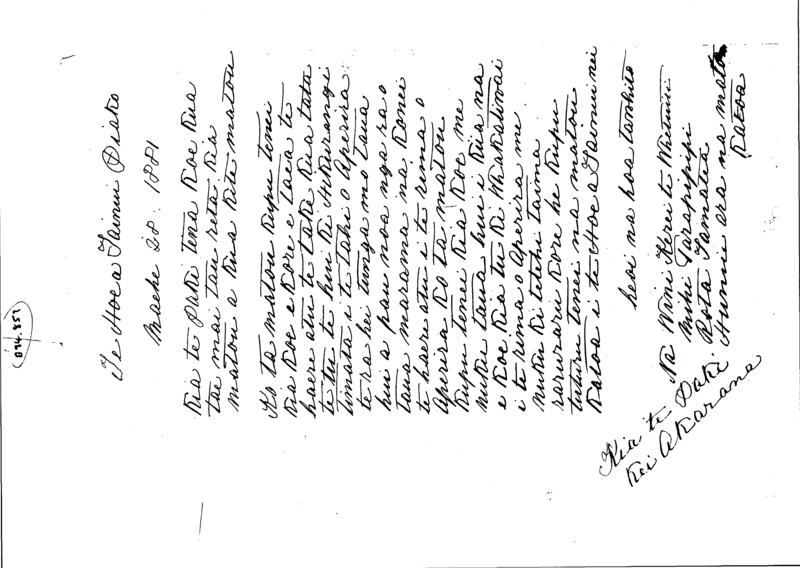 Te Hoe a Tainui Piako
Maehe 28. 1881
Kia te Paki tena Koe Kua
tae mai tau reta, Kia
matou a Kua Kite matou
Ko ta matou Kupu tenei
Kia Koe e Kore e taea te
haere atu te take Kia tata
te tu te hui Ki Hikurangi
timata i te tahi o Aperira
te ra hei tunga mo taua
hui a pau noa nga ra o
taua marama na Konei
te haere atu i te rima o
Aperira Ko ta matou
Kupu tenei Kia Koe me
nuku taua hui i Kiia na
e Koe Kia tu Ki Whakatiwai
i te rima o Aperira me
nuku Ki tetehi taima
raruraru Kore he Kupu
tuturu tenei na matou
Katoa i te Hoe a Tainui nei
heoi na hoa tawhito
Na Wini Kerei te Whetuiti
Mihi Tarapipipi
Rota Tamatea
Hunia ara na matou
Katoa
Kia te Paki
Kei Akarana
094.857